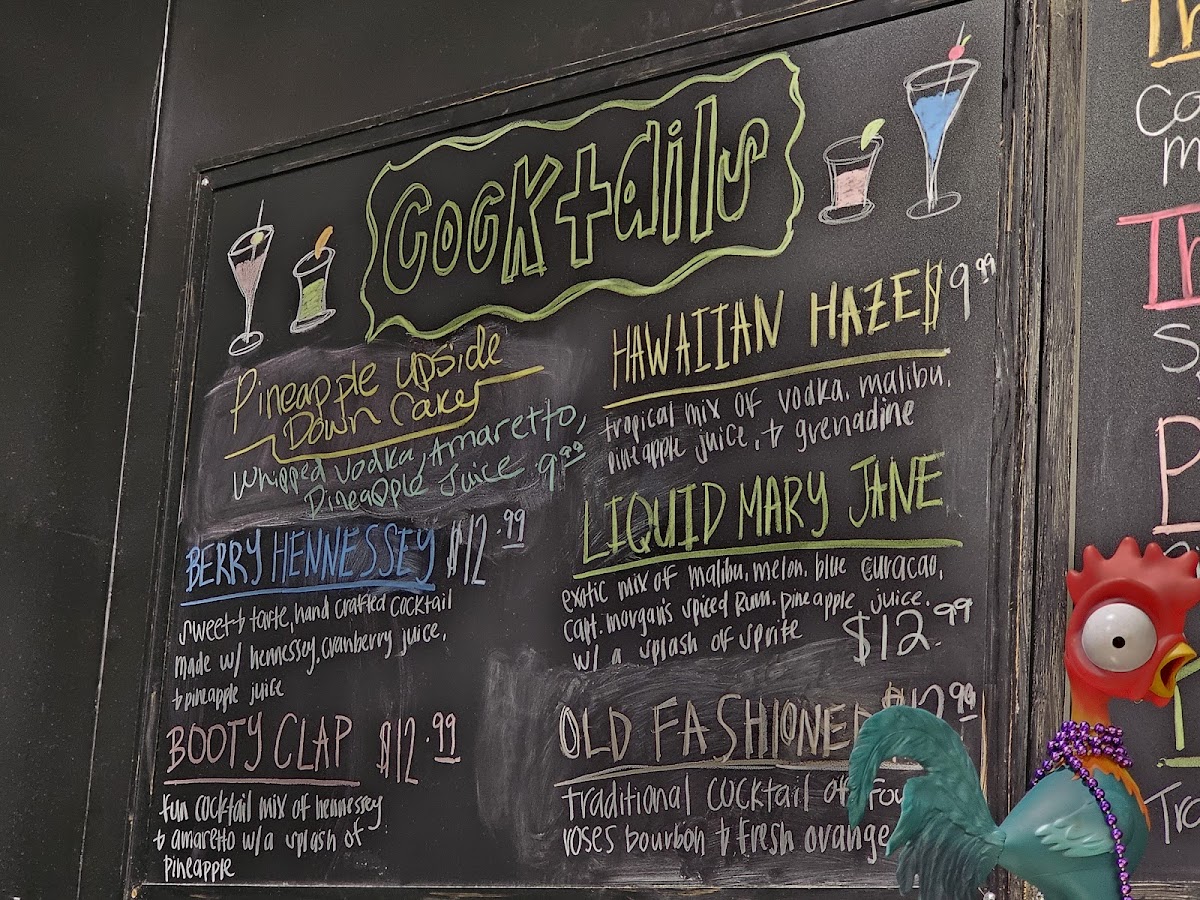 Cocktails
Pineapple Upside
Down Cake
Whipped Vodka, Amaretto,
Pineapple Juice 9.99
BERRY HENNESSEY $12.99
sweet & tarte, hand crafted cocktail
made w/ hennessey, cranberry juice,
& pineapple juice
BOOTY CLAP $12.99
fun cocktail mix of hennessey
& amaretto w/a splash of
pineapple
HAWAIIAN HAZE 9.99
tropical mix of vodka, malibu,
pineapple juice, & grenadine
LIQUID MARY JANE
exotic mix of malibu, melon, blue curacao,
capt. morgan's spiced Rum, pineapple juice,
w/ a splash of sprite $12.99
OLD FASHIONED $12.99
traditional cocktail of
roses bourbon & fresh orange